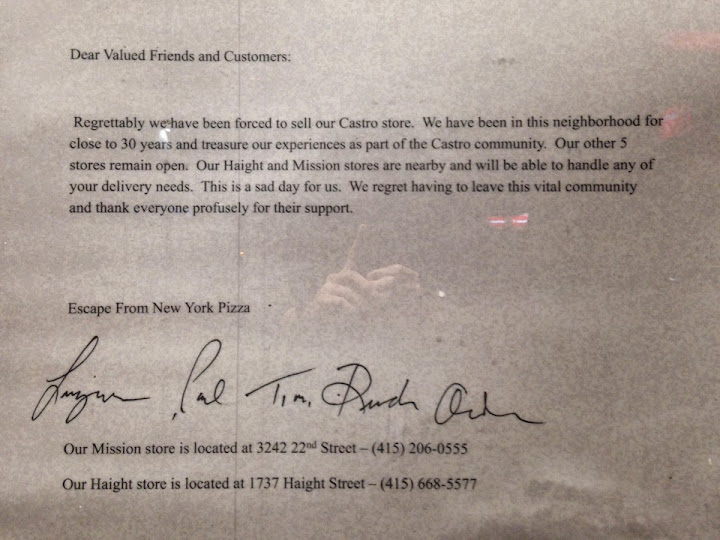 Dear Valued Friends and Customers:
Regrettably we have been forced to sell our Castro store. We have been in this neighborhood for
close to 30 years and treasure our experiences as part of the Castro community. Our other 5
stores remain open. Our Haight and Mission stores are nearby and will be able to handle any of
your delivery needs. This is a sad day for us. We regret having to leave this vital community
and thank everyone profusely for their support.
Escape From New York Pizza
Paul Tim,
Our Mission store is located at 3242 22nd Street – (415) 206-0555
Our Haight store is located at 1737 Haight Street – (415) 668-5577